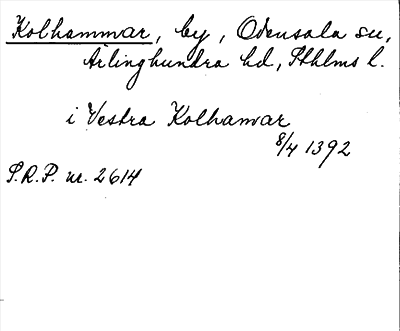 Kolhammar, by, Odensala sn,
Ärlinghundra hd, Sthlms l.
i Vestra Kolhamar
8/4 1392
S.R.P. nr. 2614